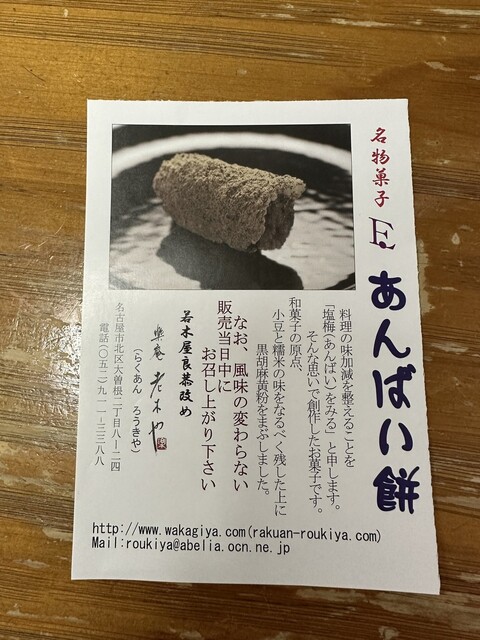 名物菓子
E
あんばい餅
料理の味加減を整えることを
「塩梅(あんばい)をみる」と申します。
そんな思いで創作したお菓子です。
和菓子の原点、
小豆と糯米の味をなるべく残した上に
黒胡麻黄粉をまぶしました。
なお、風味の変わらない
販売当日中に
お召し上がり下さい
若木屋良恭改め
楽庵 老木や
(らくあん ろうきや)
名古屋市北区大曽根二丁目八ー二四
電話(〇五二)九一一ー三三八八
http://www.wakagiya.com(rakuan-roukiya.com)
Mail:roukiya@abelia.ocn.ne.jp